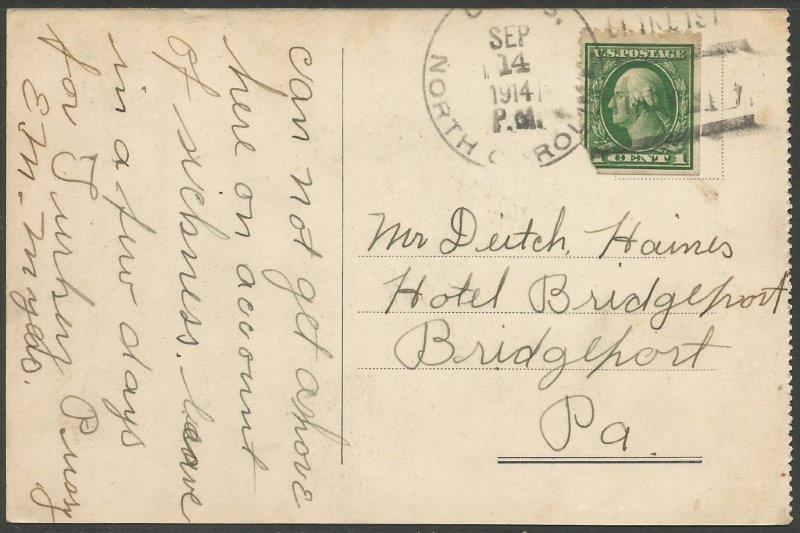 can not get above
here on account
of sickness. leave
in a few days
for Turkey
E. M.
SEP
14
1914
P.M.
NORTH CAROL
U.S. POSTAGE
1 CENT 1
Mr Deitch Haines
Hotel Bridgeport
Bridgeport
Pa.